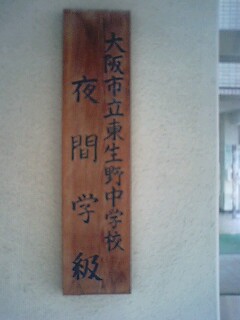 大阪市立東生野中学校
夜間学級